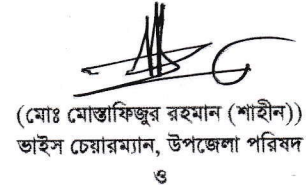 ((মোঃ মোস্তাফিজুর রহমান (শাহীন))
ভাইস চেয়ারম্যান, উপজেলা পরিষদ
ও